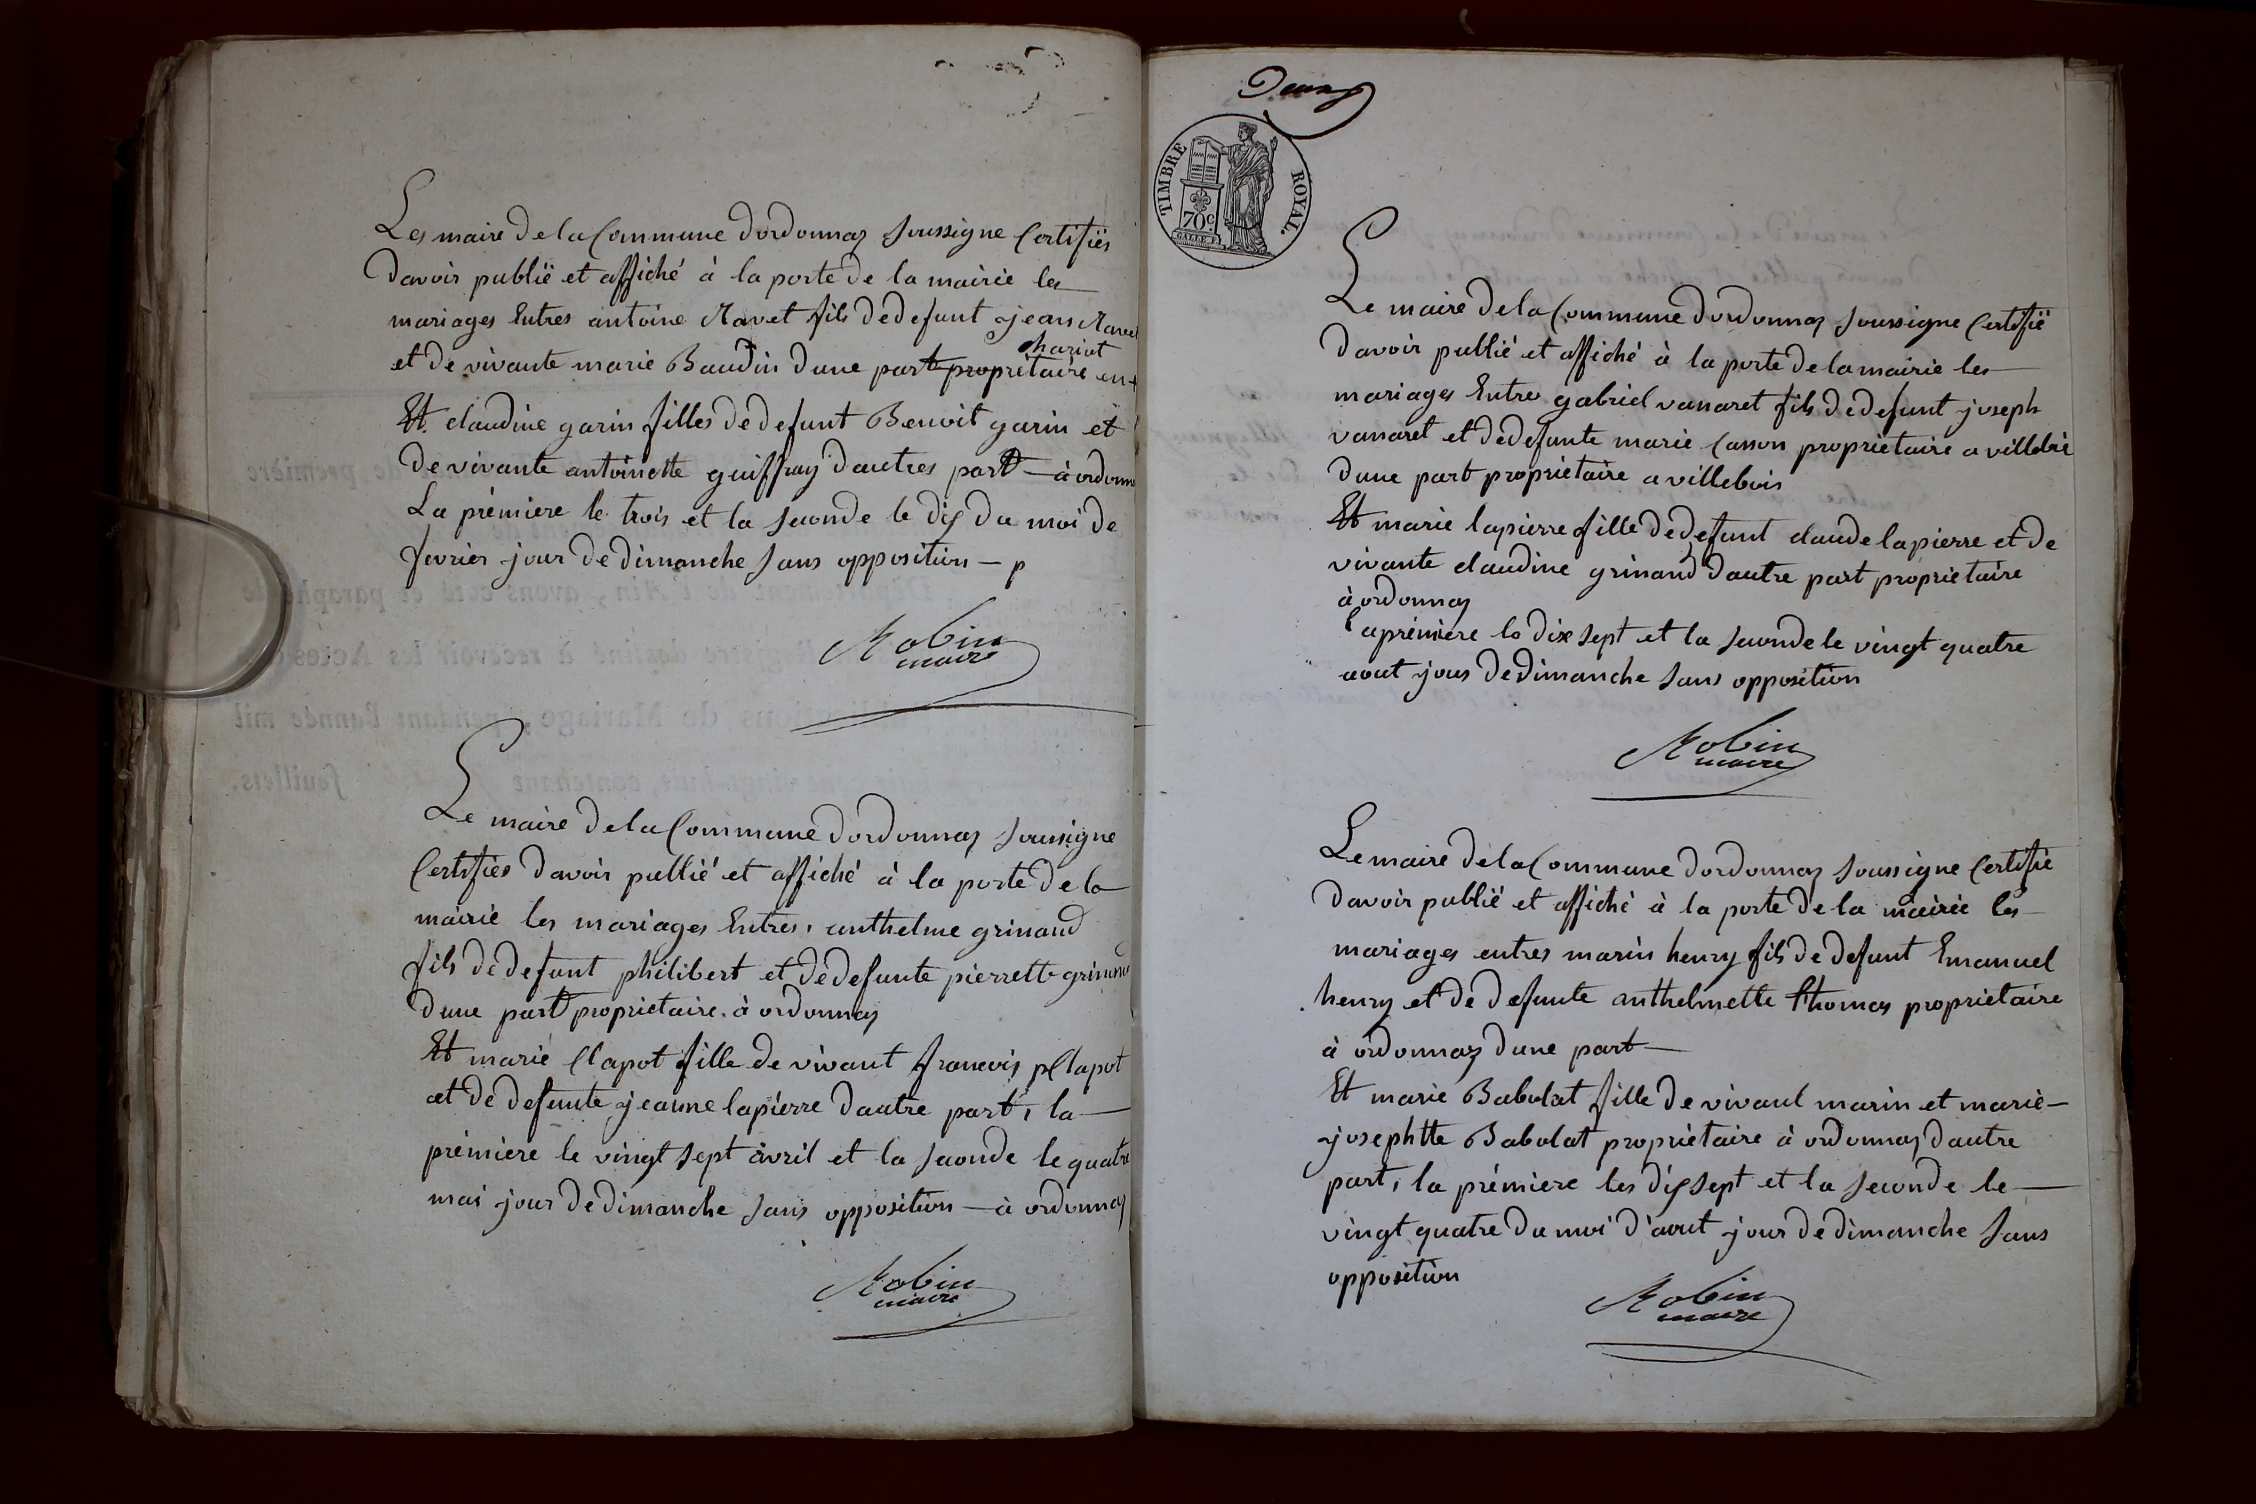 Les maire de la Commune dordonnaz soussigne Certifiés
davoir publié et affiché à la porte de la mairie les
mariages Entres antoine Ravet fils de defunt jean Ravet
chariat
et de vivante marie Baudin dune part propriétaire en
Et claudine garin filles de defunt Benoit garin et
de vivante antoinette guiffray dautres part — à ordonn
La prémiere le trois et la seconde le dix du moi de
fevrier jour de dimanche sans opposition — p
Robin
maire
Le maire de la Commune dordonnaz soussigne
Certifiés davoir publié et affiché à la porte de la
mairie les mariages Entres, anthelme grinand
fils de defunt philibert et de defunte pierrette grinand
dune part proprietaire à ordonnaz
Et marie Clapot fille de vivant francois Clapot
et de defunte jeanne lapierre dautre part, la
prémiere le vingt sept avril et la seconde le quatre
mai jour de dimanche sans opposition — à ordonnaz
Robin
maire
Deux
TIMBRE ROYAL.
70c
Le maire de la Commune dordonnaz soussigne Certifié
davoir publié et affiché à la porte de la mairie les
mariages Entres gabriel vanaret fils de defunt joseph
vanaret et de defunte marie Casson proprietaire a villebi
dune part propriétaire a villebois
Et marie lapierre fille de defunt claude lapierre et de
vivante claudine grinand dautre part proprietaire
à ordonnaz
la prémiere le dix sept et la seconde le vingt quatre
aout jour de dimanche sans opposition
Robin
maire
Le maire de la Commune dordonnaz soussigne Certifié
davoir publié et affiché à la porte de la mairie les
mariages entres marin henry fils de defunt Emanuel
henry et de defunte anthelmette thomas proprietaire
à ordonnaz dune part —
Et marie Babolat fille de vivant marin et marie
josephtte Babolat propriétaire à ordonnaz dautre
part, la prémiere les dix sept et la seconde le
vingt quatre du moi d'aout jour de dimanche sans
opposition
Robin
maire